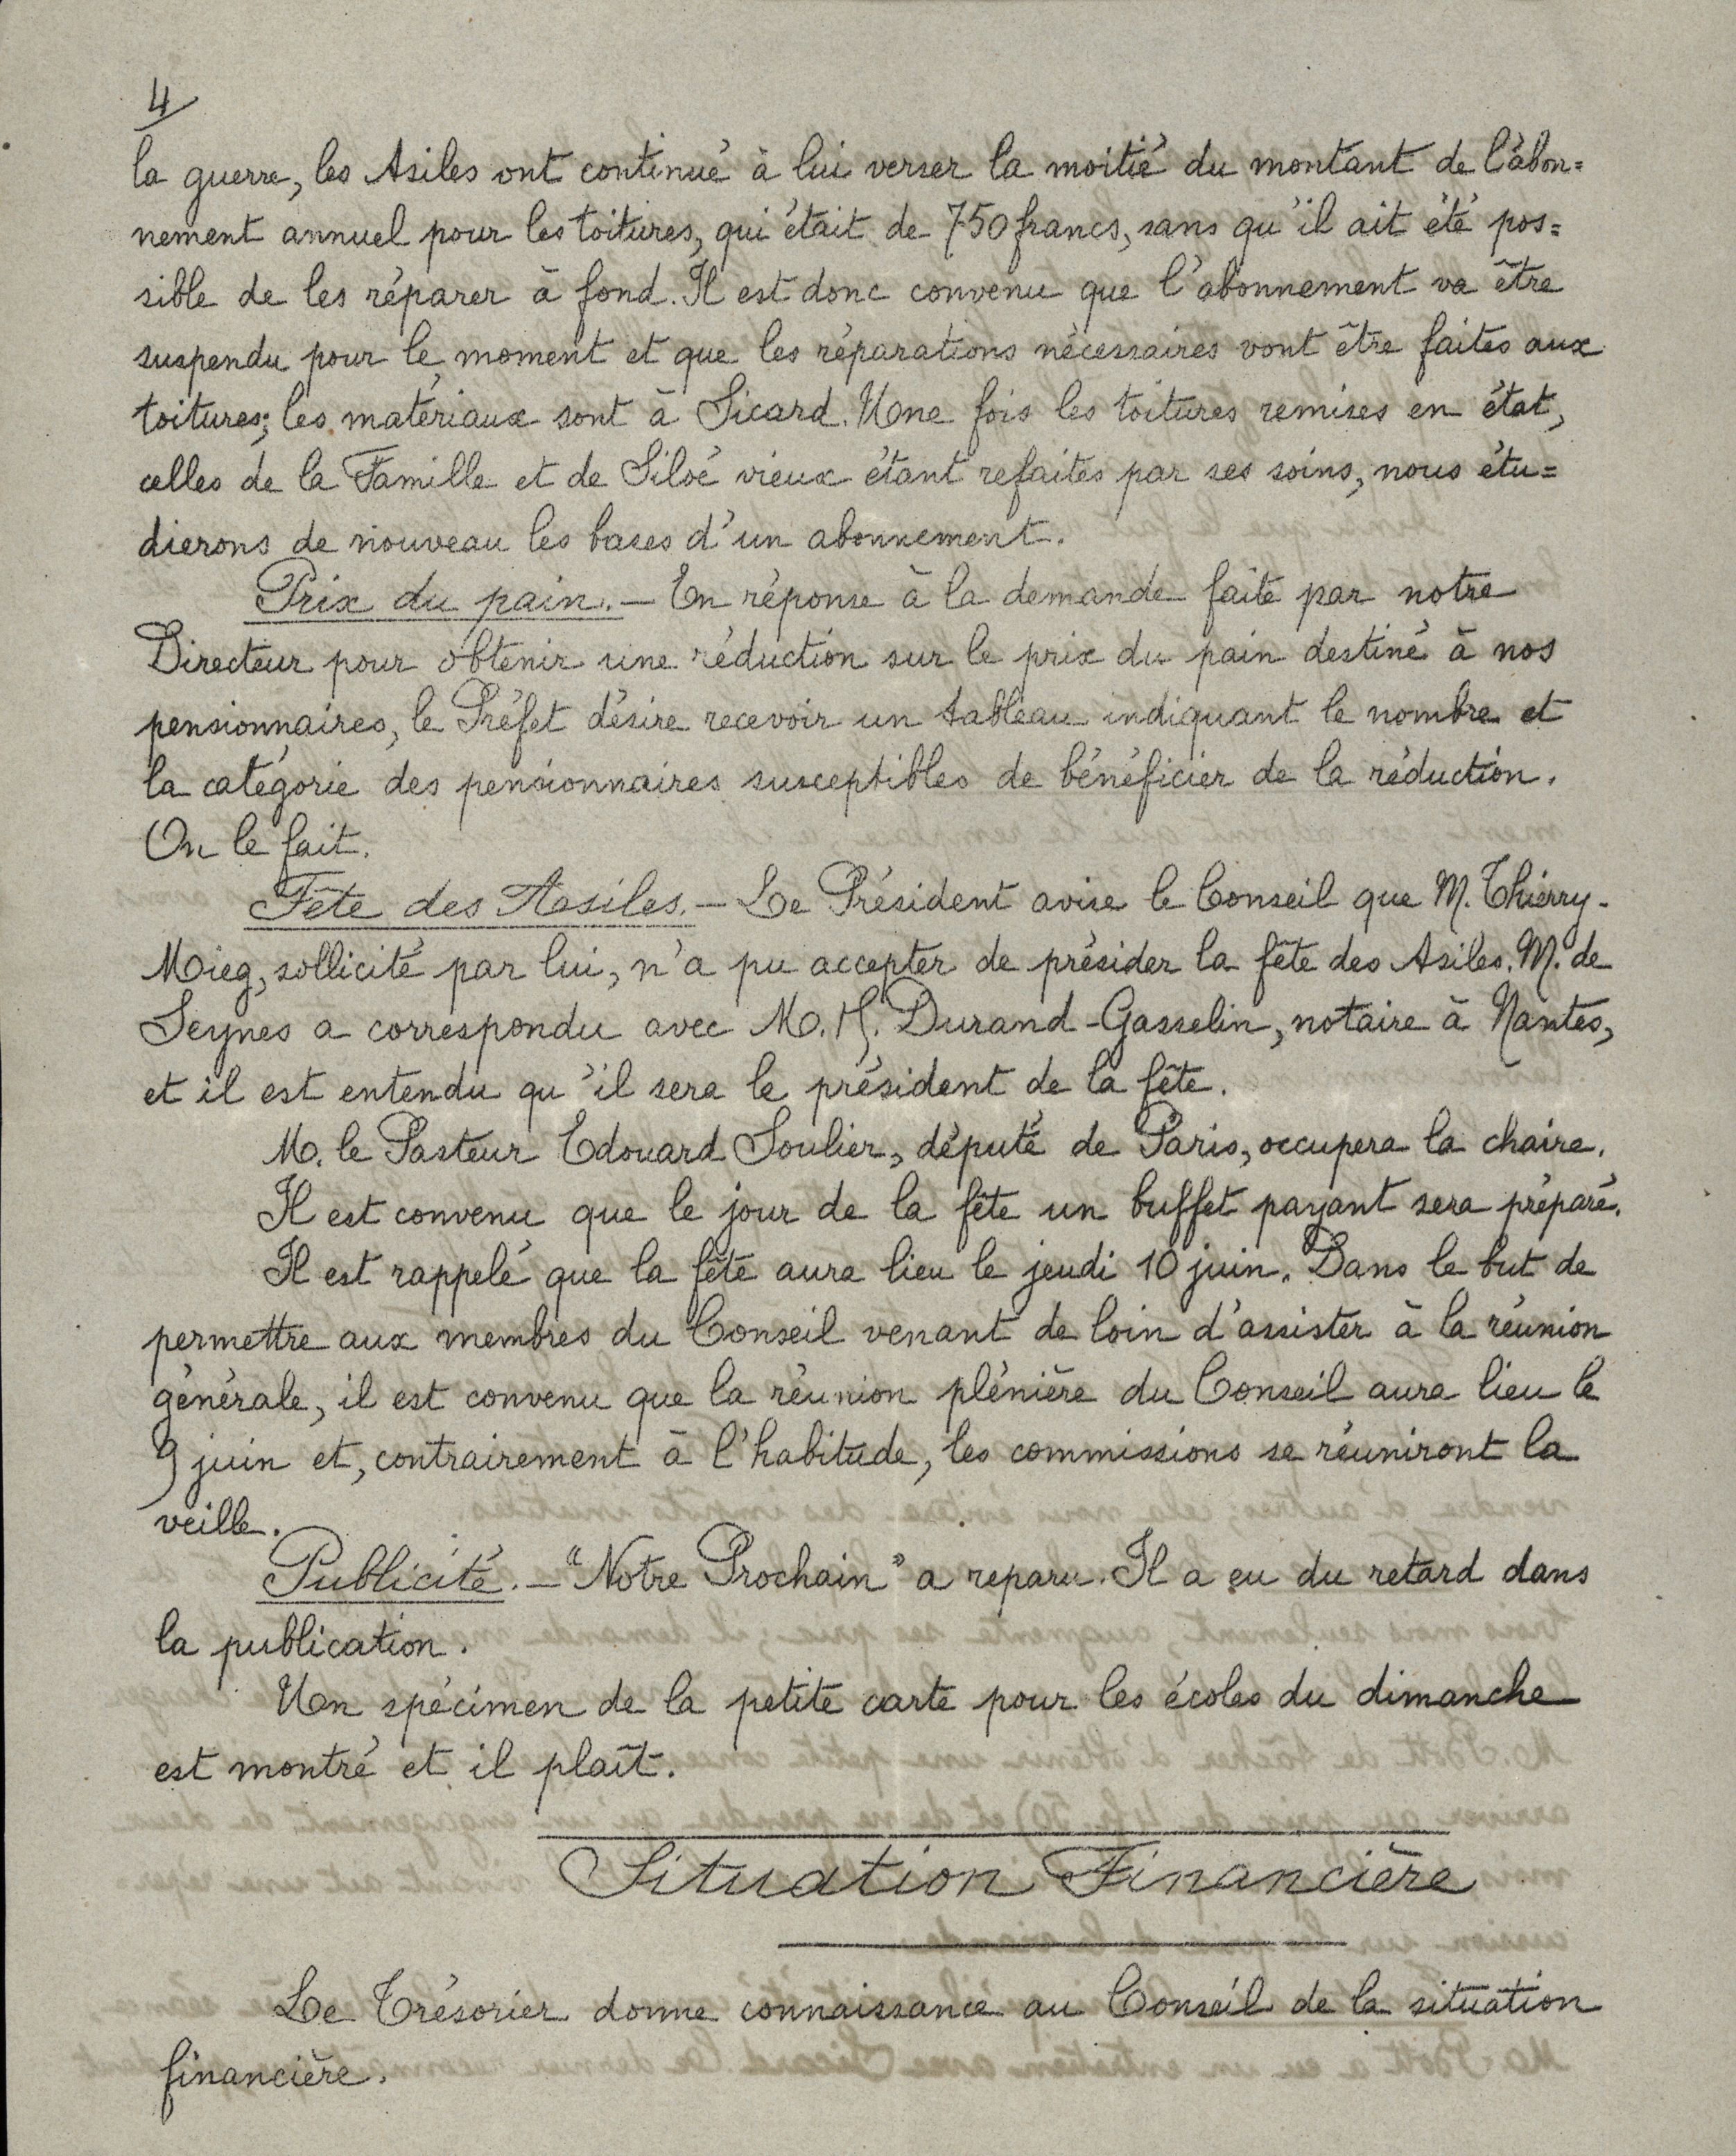 4
la guerre, les Asiles ont continué à lui verser la moitié du montant de l'abon=
nement annuel pour les toitures, qui était de 750 francs, sans qu'il ait été pos=
sible de les réparer à fond. Il est donc convenu que l'abonnement va être
suspendu pour le moment et que les réparations nécessaires vont être faites aux
toitures; les matériaux sont à Sicard. Une fois les toitures remises en état,
celles de la Famille et de Siloé vieux étant refaites par ses soins, nous étu=
dierons de nouveau les bases d'un abonnement.
Prix du pain. — En réponse à la demande faite par notre
Directeur pour obtenir une réduction sur le prix du pain destiné à nos
pensionnaires, le Préfet désire recevoir un tableau indiquant le nombre et
la catégorie des pensionnaires susceptibles de bénéficier de la réduction.
On le fait.
Fête des Asiles. — Le Président avise le Conseil que M. Thierry-
Mieg, sollicité par lui, n'a pu accepter de présider la fête des Asiles. M. de
Seynes a correspondu avec M. Durand-Gasselin, notaire à Nantes,
et il est entendu qu'il sera le président de la fête.
M. le Pasteur Edouard Soulier, député de Paris, occupera la chaire.
Il est convenu que le jour de la fête un buffet payant sera préparé.
Il est rappelé que la fête aura lieu le jeudi 10 juin. Dans le but de
permettre aux membres du Conseil venant de loin d'assister à la réunion
générale, il est convenu que la réunion plénière du Conseil aura lieu le
9 juin et, contrairement à l'habitude, les commissions se réuniront la
veille.
Publicité. — "Notre Prochain" a reparu. Il a eu du retard dans
la publication.
Un spécimen de la petite carte pour les écoles du dimanche
est montré et il plaît.
Situation Financière
Le Trésorier donne connaissance au Conseil de la situation
financière.